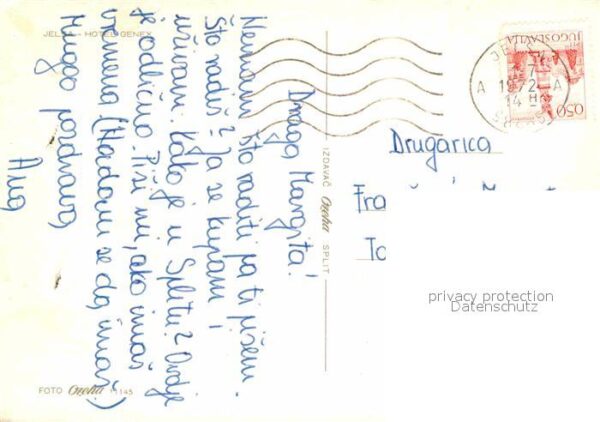 JELSA - HOTEL GENEX
Draga Margita!
Nemam što raditi pa ti pišem.
Što radiš? Ja se kupam i
uživam. Kako je u Splitu? Ovdje
je odlično. Piši mi, ako imaš
vremena (Nadam se da imaš)
Mnogo pozdrava,
Ana
FOTO Ozeha 11145
IZDAVAČ Ozeha SPLIT
JUGOSLAVIJA
0,50
1972
A A
14 H
Drugarica
Fra
To
privacy protection
Datenschutz